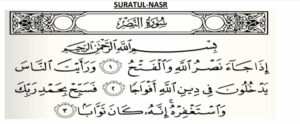 SURATUL-NASR
سُورَةُ النَّصْرِ
بِسْمِ اللَّهِ الرَّحْمَٰنِ الرَّحِيمِ
إِذَا جَاءَ نَصْرُ اللَّهِ وَالْفَتْحُ ١ وَرَأَيْتَ النَّاسَ
يَدْخُلُونَ فِي دِينِ اللَّهِ أَفْوَاجًا ٢ فَسَبِّحْ بِحَمْدِ رَبِّكَ
وَاسْتَغْفِرْهُ إِنَّهُ كَانَ تَوَّابًا ٣